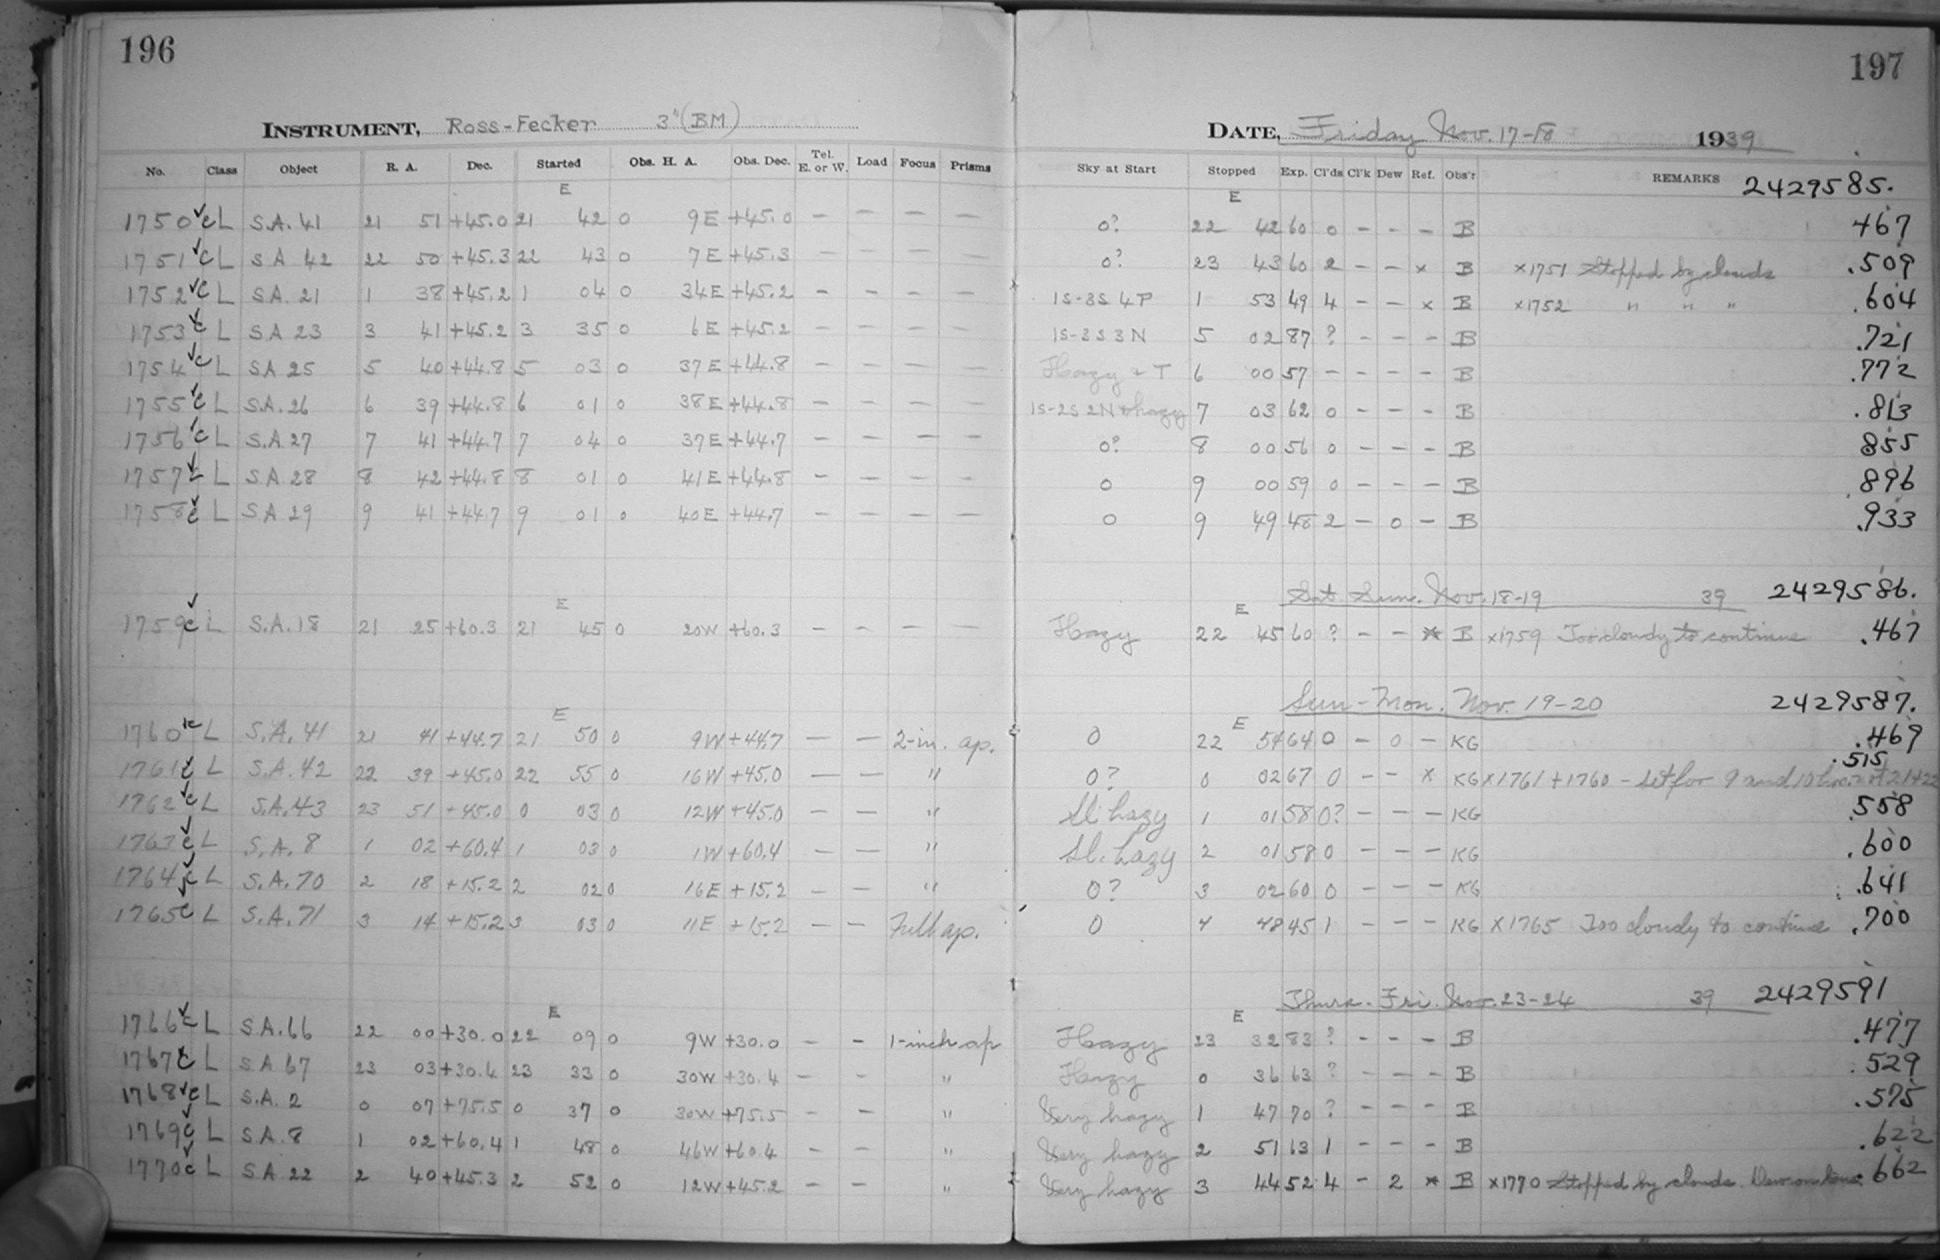 196
INSTRUMENT, Ross-Fecker 3" (BM)
No. Class Object R. A. Dec. Started Obs. H. A. Obs. Dec. Tel. E. or W. Load Focus Prisms
E
1750 c L S.A. 41 21 51 +45.0 21 42 0 9E +45.0 — — — —
1751 c L S A 42 22 50 +45.3 22 43 0 7E +45.3 — — —
1752 c L S.A. 21 1 38 +45.2 1 04 0 34E +45.2 — — — —
1753 c L S A 23 3 41 +45.2 3 35 0 6E +45.2 — — — —
1754 c L S A 25 5 40 +44.8 5 03 0 37E +44.8 — — — —
1755 c L S.A. 26 6 39 +44.8 6 01 0 38E +44.8 — — — —
1756 c L S.A. 27 7 41 +44.7 7 04 0 37E +44.7 — — — —
1757 c L S.A 28 8 42 +44.8 8 01 0 41E +44.8 — — — —
1758 c L S A 29 9 41 +44.7 9 01 0 40E +44.7 — — — —
E
1759 c L S.A. 18 21 25 +60.3 21 45 0 20W +60.3 — — — —
E
1760 c L S.A. 41 21 41 +44.7 21 50 0 9W +44.7 — — 2-in. ap.
1761 c L S.A. 42 22 39 +45.0 22 55 0 16W +45.0 — — "
1762 c L S.A. 43 23 51 +45.0 0 03 0 12W +45.0 — — "
1763 c L S.A. 8 1 02 +60.4 1 03 0 1W +60.4 — — "
1764 c L S.A. 70 2 18 +15.2 2 02 0 16E +15.2 — — "
1765 c L S.A. 71 3 14 +15.2 3 03 0 11E +15.2 — — Full ap.
E
1766 c L S A. 66 22 00 +30.0 22 09 0 9W +30.0 — — 1-inch ap
1767 c L S A 67 23 03 +30.4 23 33 0 30W +30.4 — — "
1768 c L S.A. 2 0 07 +75.5 0 37 0 30W +75.5 — — "
1769 c L S A. 8 1 02 +60.4 1 48 0 46W +60.4 — — "
1770 c L S A 22 2 40 +45.3 2 52 0 12W +45.2 — — "
197
DATE, Friday Nov. 17-18 1939
Sky at Start Stopped Exp. Cl'ds Cl'k Dew Ref. Obs'r REMARKS 2429585.
E
0? 22 42 60 0 — — — B .467
0? 23 43 60 2 — — x B x1751 Stopped by clouds .509
1S-3S 4P 1 53 49 4 — — x B x1752 " " " .604
1S-3S 3N 5 02 87 ? — — — B .721
Hazy + T 6 00 57 — — — — B .772
1S-2S 2N + hazy 7 03 62 0 — — — B .813
0? 8 00 56 0 — — — B .855
0 9 00 59 0 — — — B .896
0 9 49 48 2 — 0 — B .933
Sat. Sun. Nov. 18-19 39 2429586.
E
Hazy 22 45 60 ? — — x B x1759 Too cloudy to continue .467
Sun-Mon. Nov. 19-20 2429587.
E
0 22 54 64 0 — 0 — KG .469
0? 0 02 67 0 — — x KG x1761 + 1760 - set for 9 and 10 .515
Sl. hazy 1 01 58 0? — — — KG .558
Sl. hazy 2 01 58 0 — — — KG .600
0? 3 02 60 0 — — — KG .641
0 4 48 45 1 — — — KG X1765 Too cloudy to continue .700
Thurs.-Fri. Nov. 23-24 39 2429591
E
Hazy 23 32 83 ? — — — B .477
Hazy 0 36 63 ? — — — B .529
Very hazy 1 47 70 ? — — — B .575
Very hazy 2 51 63 1 — — — B .622
Very hazy 3 44 52 4 — 2 x B x1770 Stopped by clouds. Dew on lens. .662